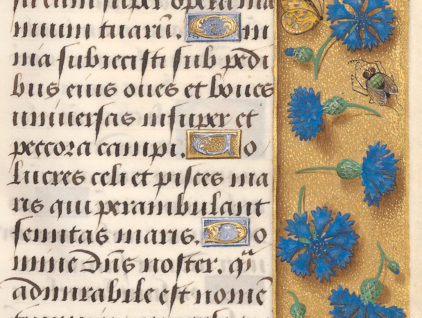 eum super opera ma
nuum tuarū. Om
nia subiecisti sub pedi
bus eius oues et boues
uniuersas insuper et
peccora campi. Vo
lucres celi et pisces ma
ris qui perambulant
semitas maris. Do
mine dn̄s noster. q̄
admirabile est nomē